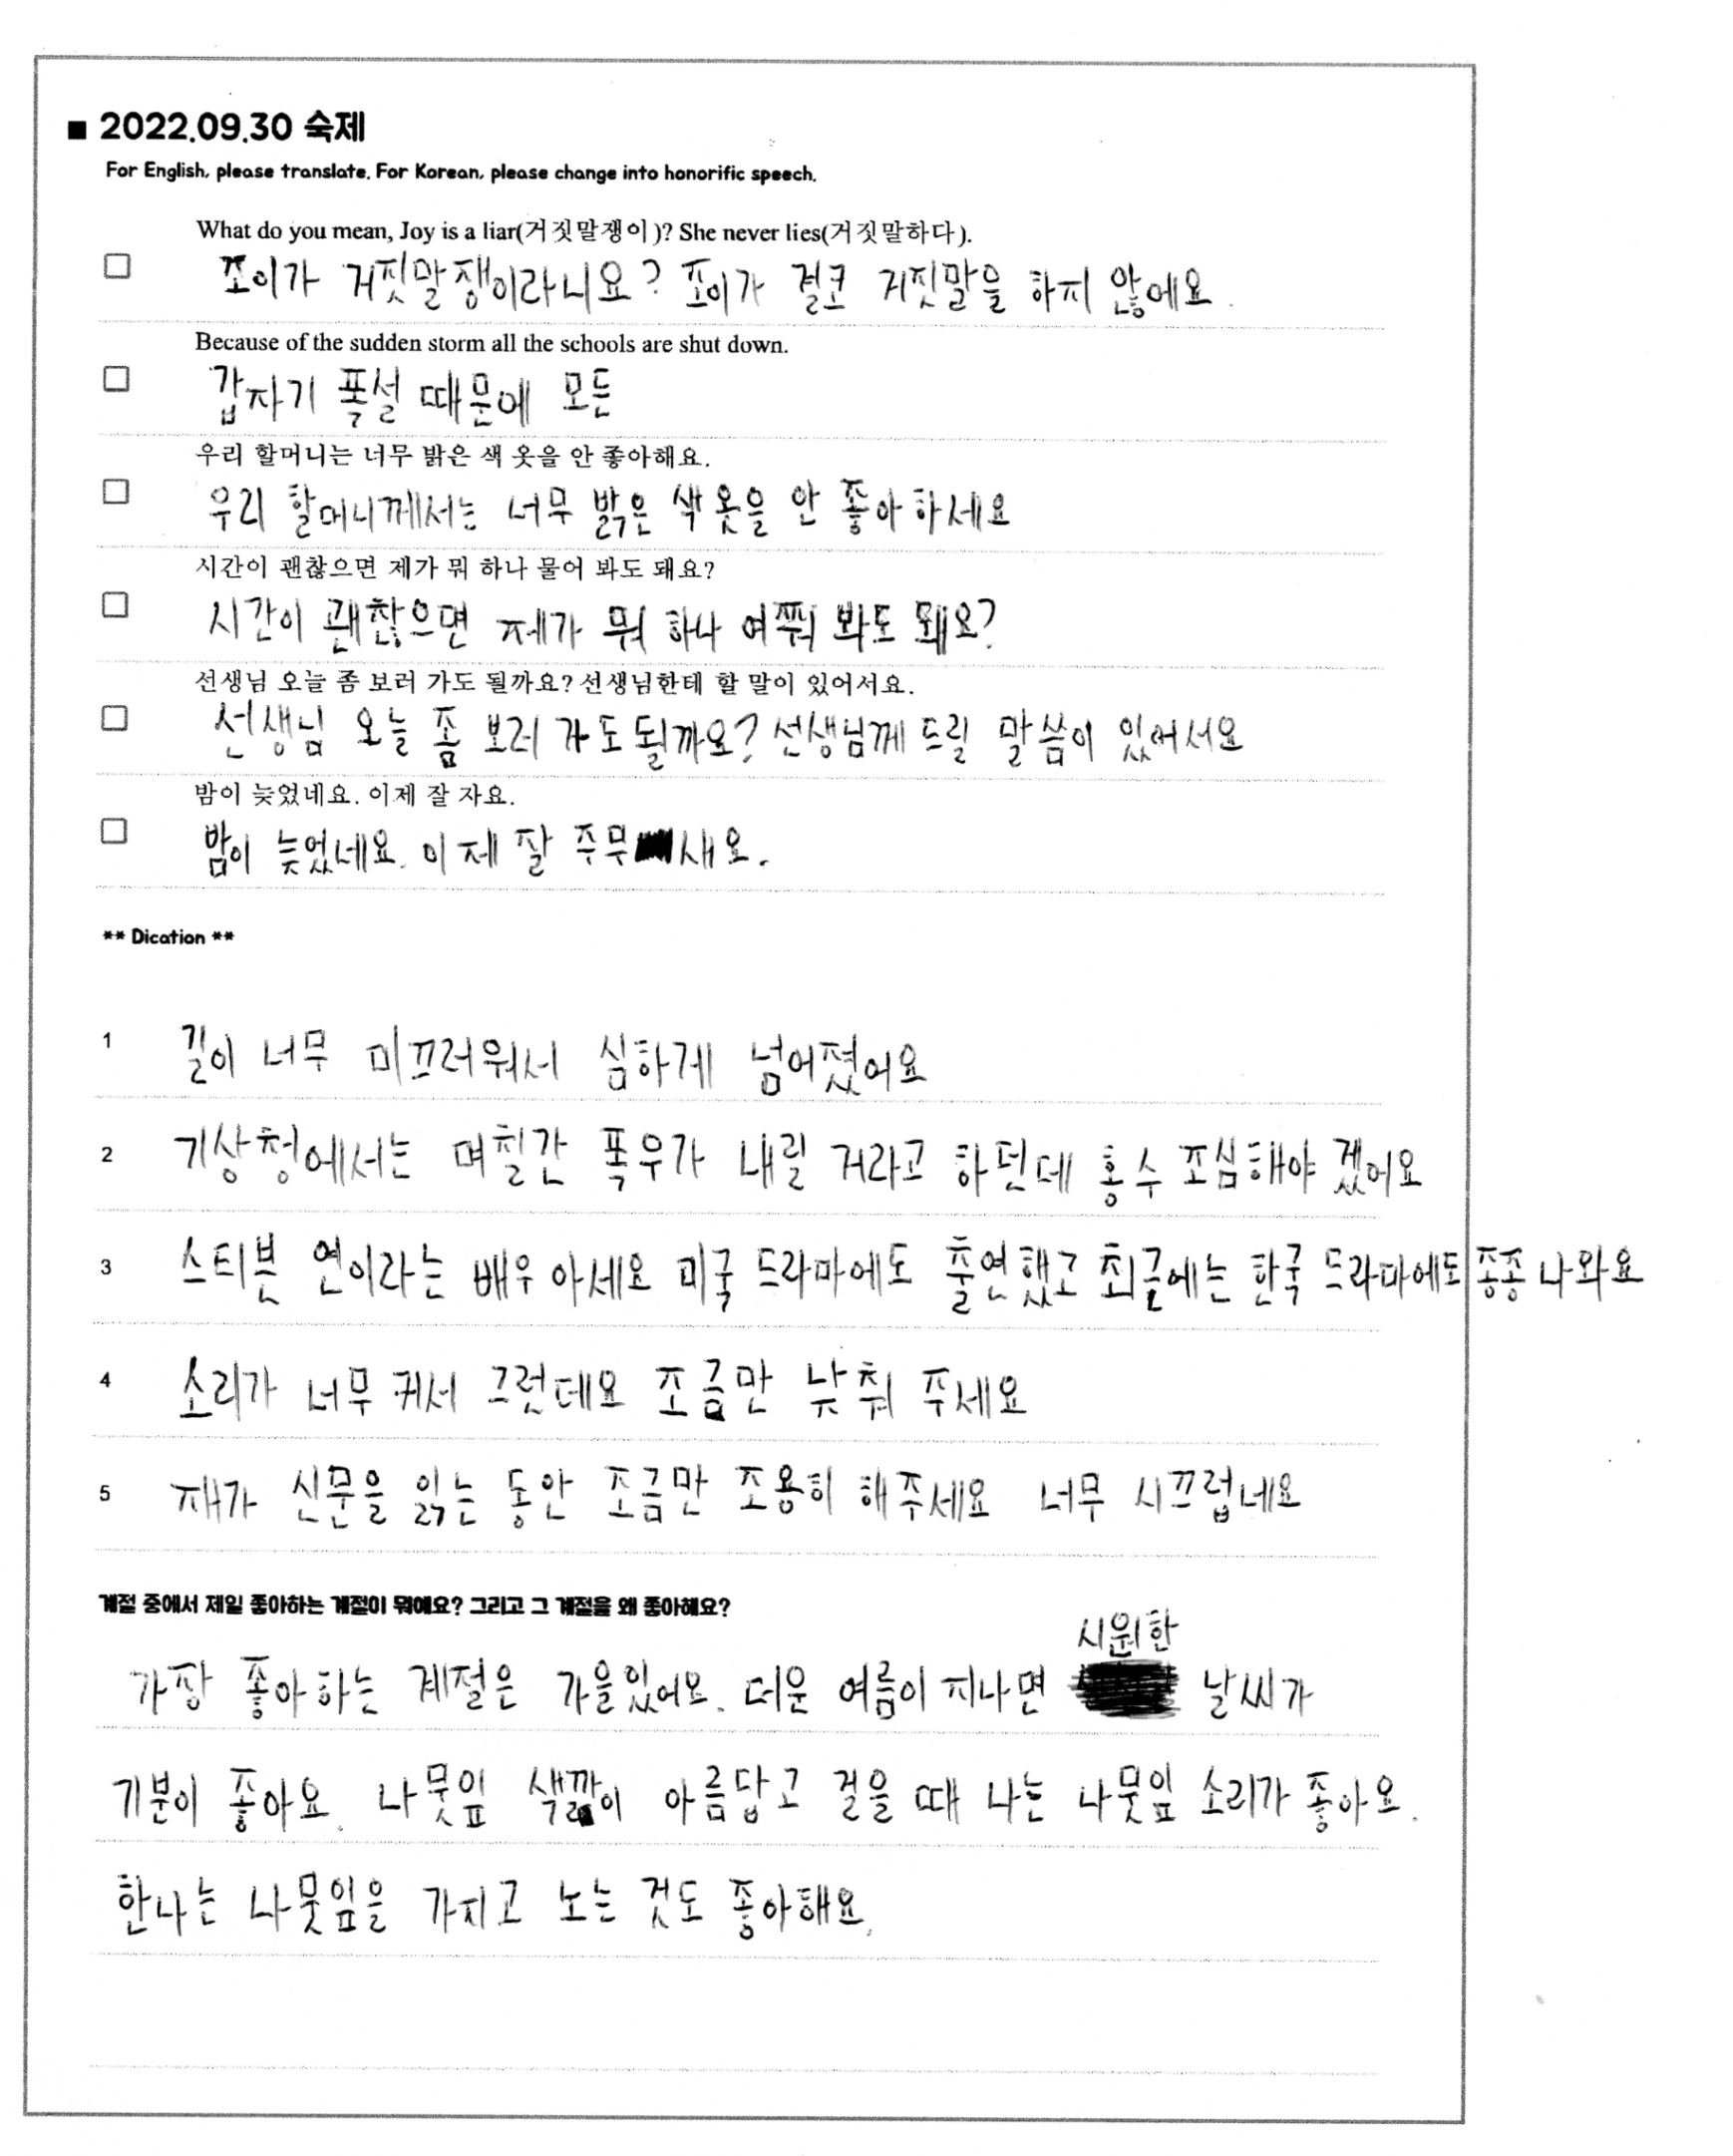 ■ 2022.09.30 숙제
For English, please translate. For Korean, please change into honorific speech.
What do you mean, Joy is a liar(거짓말쟁이)? She never lies(거짓말하다).
쪼이가 거짓말쟁이라니요? 쪼이가 결코 거짓말을 하지 않에요.
Because of the sudden storm all the schools are shut down.
갑자기 폭설 때문에 모든
우리 할머니는 너무 밝은 색 옷을 안 좋아해요.
우리 할머니께서는 너무 밝은 색 옷을 안 좋아하세요
시간이 괜찮으면 제가 뭐 하나 물어 봐도 돼요?
시간이 괜찮으면 제가 뭐 하나 여쭤 봐도 돼요?
선생님 오늘 좀 보러 가도 될까요? 선생님한테 할 말이 있어서요.
선생님 오늘 좀 보러 가도 될까요? 선생님께 드릴 말씀이 있어서요
밤이 늦었네요. 이제 잘 자요.
밤이 늦었네요. 이제 잘 주무새요.
** Dication **
1 길이 너무 미끄러워서 심하게 넘어졌어요
2 기상청에서는 며칠간 폭우가 내릴 거라고 하던데 홍수 조심해야 겠어요
3 스티븐 연이라는 배우 아세요 미국 드라마에도 출연했고 최글에는 한국 드라마에도 종종 나와요
4 소리가 너무 커서 그런데요 조금만 낮춰 주세요
5 재가 신문을 읽는 동안 조금만 조용히 해주세요 너무 시끄럽네요
계절 중에서 제일 좋아하는 계절이 뭐예요? 그리고 그 계절을 왜 좋아해요?
가장 좋아하는 계절은 가을있어요. 더운 여름이 지나면 시원한 날씨가
기분이 좋아요. 나뭇잎 색깔이 아름답고 걸을 때 나는 나뭇잎 소리가 좋아요.
한나는 나뭇잎을 가지고 노는 것도 좋아해요.